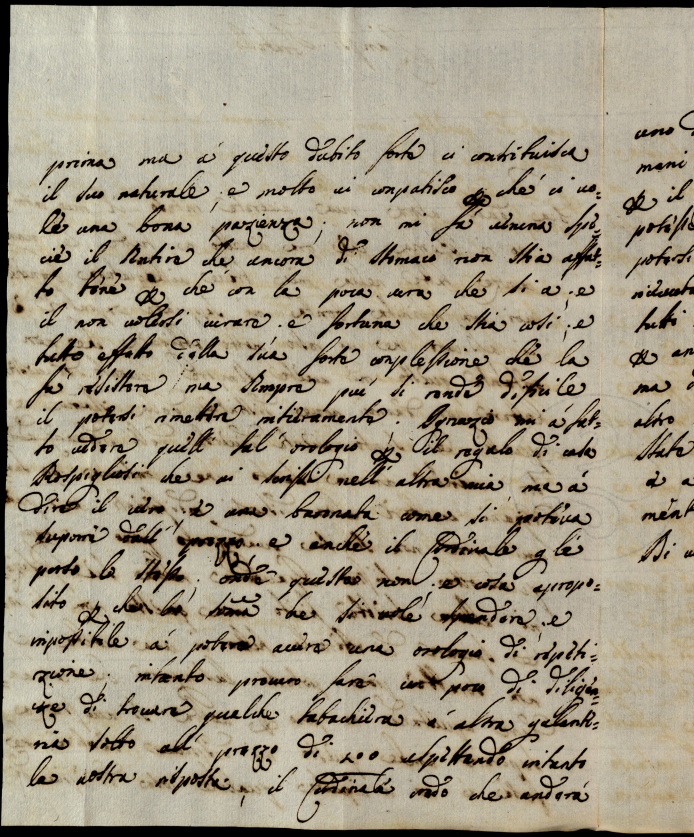 prima ma a questo dubito forte ci contribuisca
il suo naturale, e molto vi conpatisco p che ci vo=
le una bona pazienza; non mi fà niuna spe=
cie il sentire che ancora di stomaco non stia affat=
to bene p che con la poca cura che si a; e
il non volersi curare. e fortuna che stia così; e
tutto effetto dalla sua forte conplessione che la
fà resistere ma sempre piu si rende dificile
il potersi rimettere intieramente. Ignazio mi à fat=
to vedere quell tal orologio p il regalo di casa
Rospigliosi che vi scrissi nell altra mia, ma à
dire il vero è una baronata come si poteva
supore dall prezzo e anche il Cardinale gl è
parso lo stesso. onde questa non, e cosa apropo=
sito p che la soma che si vole spendere. e
inpossibile à potere avere una orologio di ripeti=
zione; intanto procuro fare un poca di diligen=
ze di trovare qualche tabachiera ò altra galante=
ria sotto all prezzo di 200 aspettando intanto
la vostra risposta; il Cardinale credo che anderà
uno
mani
p il
potersi
tutti
p an
ma
altro
state
è a
ment
Di